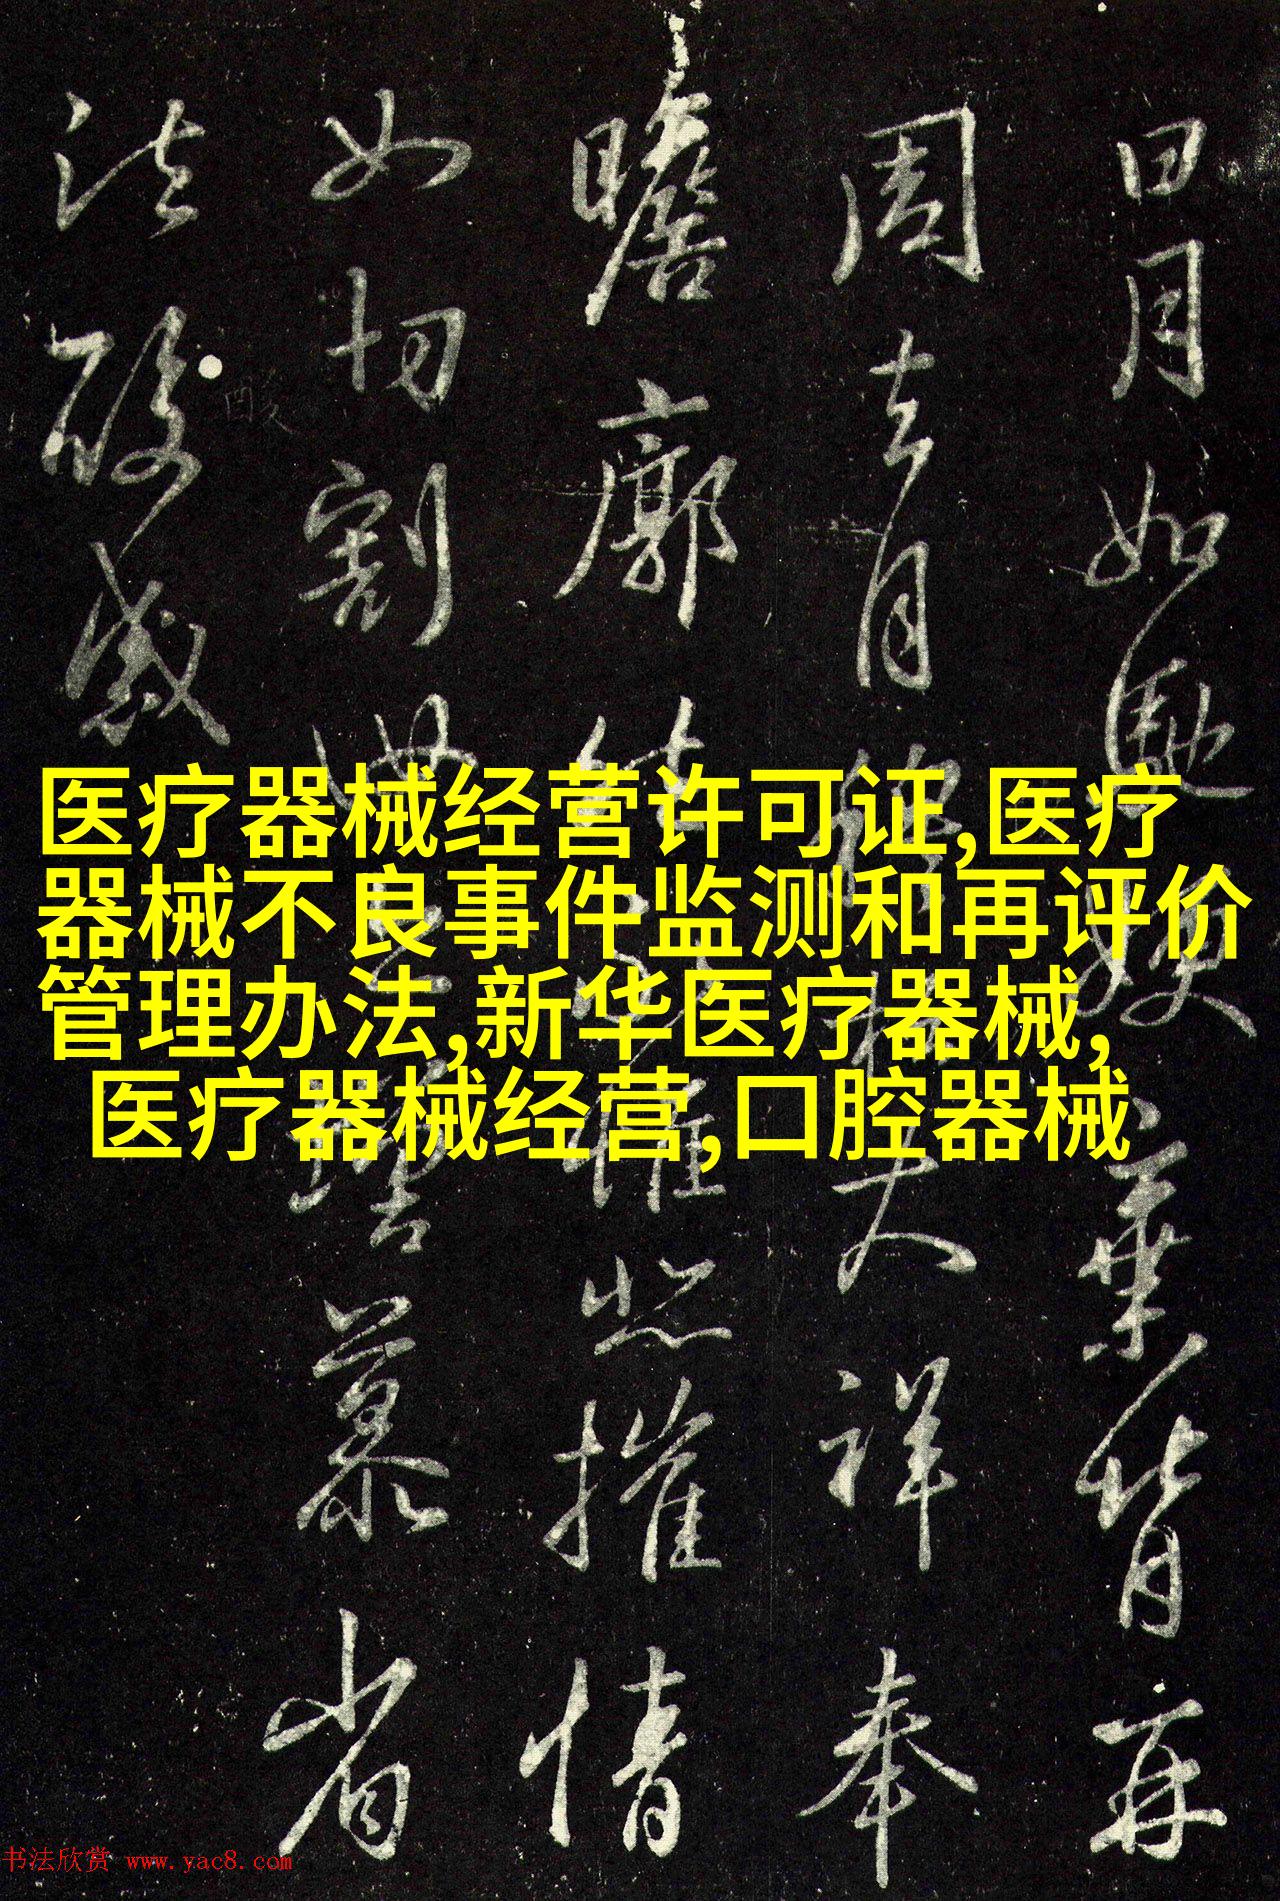 日月如馳嫂棄背再
周去月大祥奉
瞻廓惟悲摧情
如切割慕省
酸感
医疗器械经营许可证,医疗
器械不良事件监测和再评价
管理办法,新华医疗器械,
医疗器械经营,口腔器械
书法欣赏 www.yac8.com